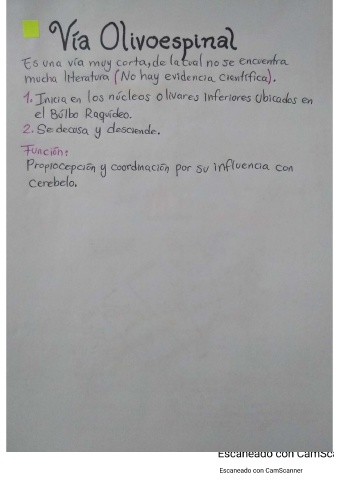 Vía Olivoespinal
Es una vía muy corta, de la cual no se encuentra
mucha literatura (No hay evidencia científica).
1. Inicia en los núcleos olivares Inferiores Ubicados en
el Búlbo Raquídeo.
2. Se decusa y desciende.
Función:
Propiocepción y coordinación por su influencia con
cerebelo.
Escaneado con CamSc
Escaneado con CamScanner